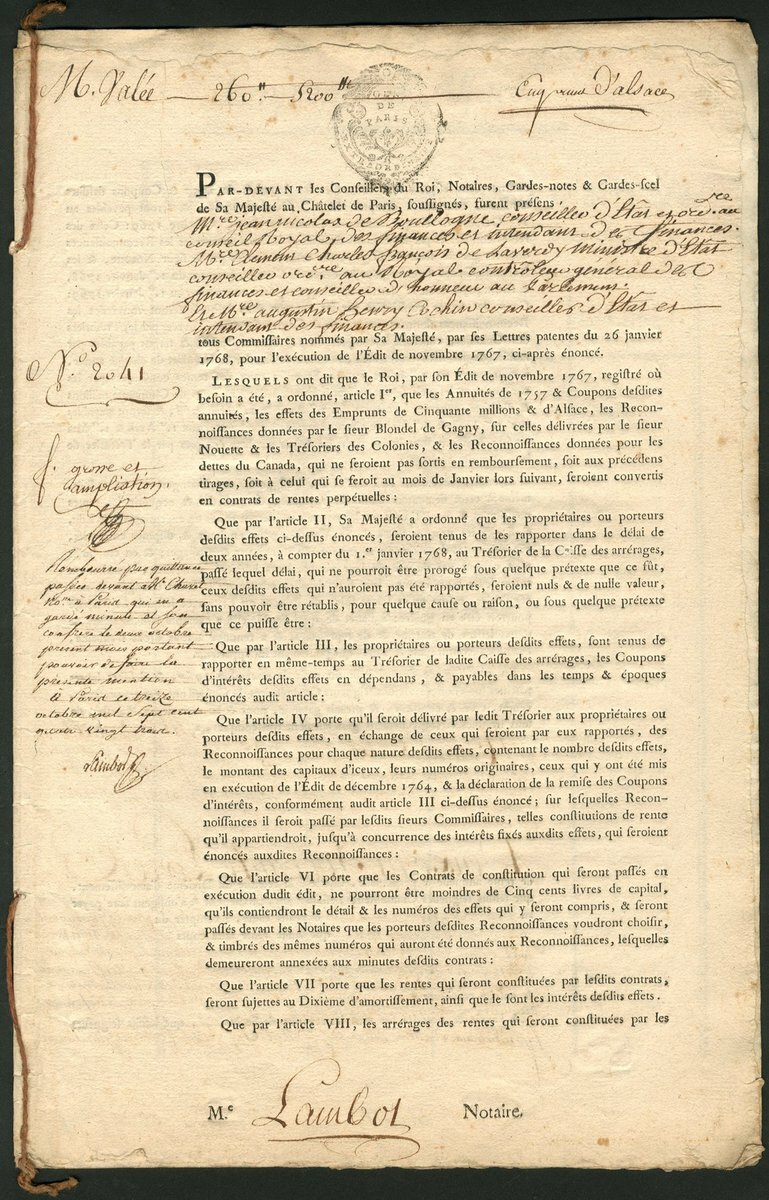 M. Valée — 260.tt 5200tt — Emprunt D'alsace
DE
PARIS
PAR-DEVANT les Conseillers du Roi, Notaires, Gardes-notes & Gardes-scel
de Sa Majesté au Châtelet de Paris, soussignés, furent présens
Mre. jean nicolas de Boullogne conseiller d'Etat et ordre. au
conseil Royal des finances et intendant des finances.
Mre. Clement Charles françois de Laverdy ministre d'Etat
conseiller ordre. au Royal controleur général des
finances et conseiller d'honneur au Parlement.
Et Mre augustin henry Cochin conseiller d'Etat et
intendant des finances.
tous Commissaires nommés par Sa Majesté, par ses Lettres patentes du 26 janvier
1768, pour l'exécution de l'Édit de novembre 1767, ci-après énoncé.
No. 2041
LESQUELS ont dit que le Roi, par son Édit de novembre 1767, registré où
besoin a été, a ordonné, article Ier, que les Annuités de 1757 & Coupons desdites
annuités, les effets des Emprunts de Cinquante millions & d'Alsace, les Recon-
noissances données par le sieur Blondel de Gagny, sur celles délivrées par le sieur
Nouette & les Trésoriers des Colonies, & les Reconnoissances données pour les
dettes du Canada, qui ne seroient pas sortis en remboursement, soit aux précédens
tirages, soit à celui qui se feroit au mois de Janvier lors suivant, seroient convertis
en contrats de rentes perpétuelles :
f. grosse et
ampliation.
Que par l'article II, Sa Majesté a ordonné que les propriétaires ou porteurs
desdits effets ci-dessus énoncés, seroient tenus de les rapporter dans le délai de
deux années, à compter du 1.er janvier 1768, au Trésorier de la Caisse des arrérages,
passé lequel délai, qui ne pourroit être prorogé sous quelque prétexte que ce sût,
ceux desdits effets qui n'auroient pas été rapportés, seroient nuls & de nulle valeur,
sans pouvoir être rétablis, pour quelque cause ou raison, ou sous quelque prétexte
que ce puisse être :
Remboursé par quittance
passée devant Me Chavet
nore. à Paris qui en a
gardé minute et son
confrere le deux octobre
present mois portant
pouvoir de faire la
presente mention
à Paris ce treize
octobre mil sept cent
quatre vingt trois.
Lambot
Que par l'article III, les propriétaires ou porteurs desdits effets, sont tenus de
rapporter en même-temps au Trésorier de ladite Caisse des arrérages, les Coupons
d'intérêts desdits effets en dépendans, & payables dans les temps & époques
énoncés audit article ;
Que l'article IV porte qu'il seroit délivré par ledit Trésorier aux propriétaires ou
porteurs desdits effets, en échange de ceux qui seroient par eux rapportés, des
Reconnoissances pour chaque nature desdits effets, contenant le nombre desdits effets,
le montant des capitaux d'iceux, leurs numéros originaires, ceux qui y ont été mis
en exécution de l'Édit de décembre 1764, & la déclaration de la remise des Coupons
d'intérêts, conformément audit article III ci-dessus énoncé ; sur lesquelles Recon-
noissances il seroit passé par lesdits sieurs Commissaires, telles constitutions de rente
qu'il appartiendroit, jusqu'à concurrence des intérêts fixés auxdits effets, qui seroient
énoncés auxdites Reconnoissances :
Que l'article VI porte que les Contrats de constitution qui seront passés en
exécution dudit édit, ne pourront être moindres de Cinq cents livres de capital,
qu'ils contiendront le détail & les numéros des effets qui y seront compris, & seront
passés devant les Notaires que les porteurs desdites Reconnoissances voudront choisir,
& timbrés des mêmes numéros qui auront été donnés aux Reconnoissances, lesquelles
demeureront annexées aux minutes desdits contrats :
Que l'article VII porte que les rentes qui seront constituées par lesdits contrats,
seront sujettes au Dixième d'amortissement, ainsi que le sont les intérêts desdits effets.
Que par l'article VIII, les arrérages des rentes qui seront constituées par les
M.e Lambot Notaire.